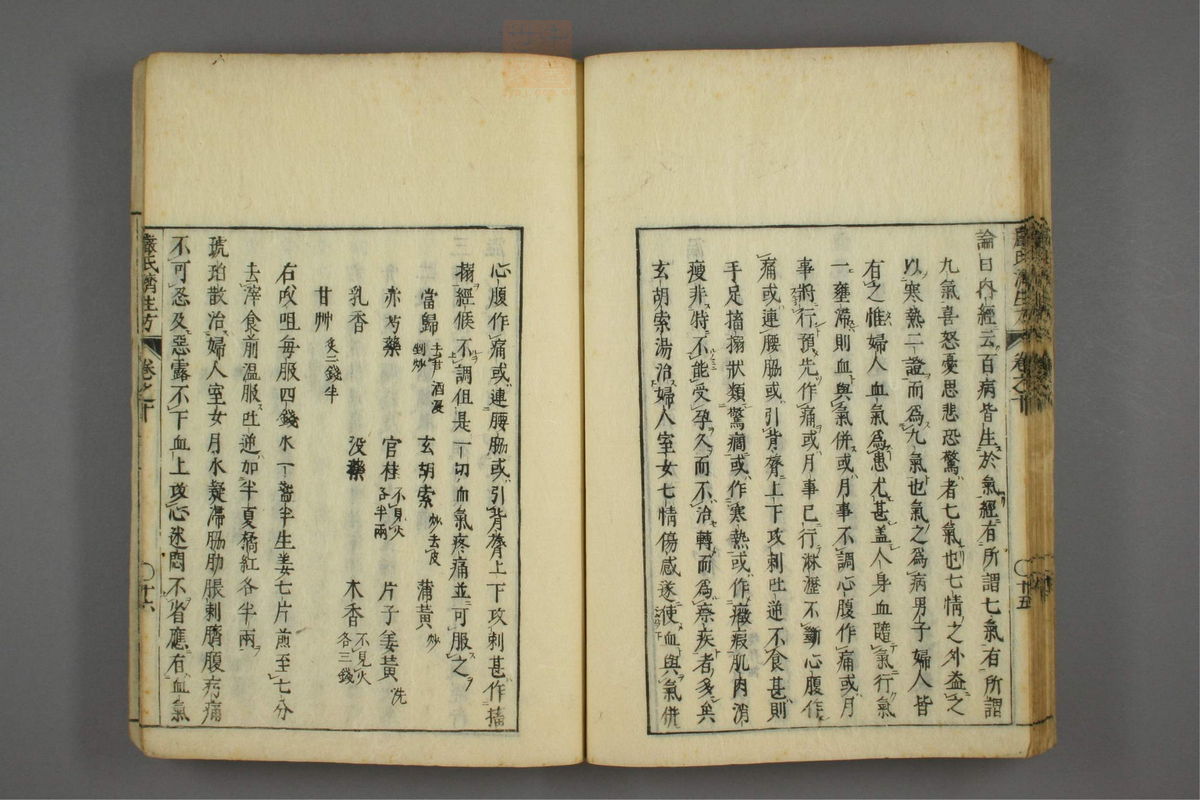 論曰内經云百病皆生於氣經有所謂七氣有所謂
九氣喜怒憂思悲恐驚者七氣也七情之外益之
以寒熱二證而爲九氣也氣之爲病男子婦人皆
有之惟婦人血氣爲患尤甚盖人身血隨氣行氣
一壅滯則血與氣併或月事不調心腹作痛或月
事將行預先作痛或月事已行淋瀝不斷心腹作
痛或連腰脇或引背膂上下攻刺吐逆不食甚則
手足搐搦狀類驚癇或作寒熱或作癥瘕肌肉消
瘦非特不能受孕久而不治轉而爲瘵疾者多矣
玄胡索湯治婦人室女七情傷感遂使血與氣併
心腹作痛或連腰脇或引背膂上下攻刺甚作搐
搦經候不調但是一切血氣疼痛並可服之
當歸 去苗酒浸剉炒 玄胡索 炒去皮 蒲黃 炒
赤芍藥 官桂 不見火各半兩 片子姜黃 洗
乳香 没藥 木香 不見火各三錢
甘艸 炙三錢半
右㕮咀每服四錢水一盞半生姜七片煎至七分
去滓食前溫服吐逆加半夏橘紅各半兩
琥珀散治婦人室女月水凝滯脇肋脹刺臍腹㽲痛
不可忍及惡露不下血上攻心迷悶不省應有血氣
嚴氏濟生方 卷之十 十五
嚴氏濟生方 卷之十 十六